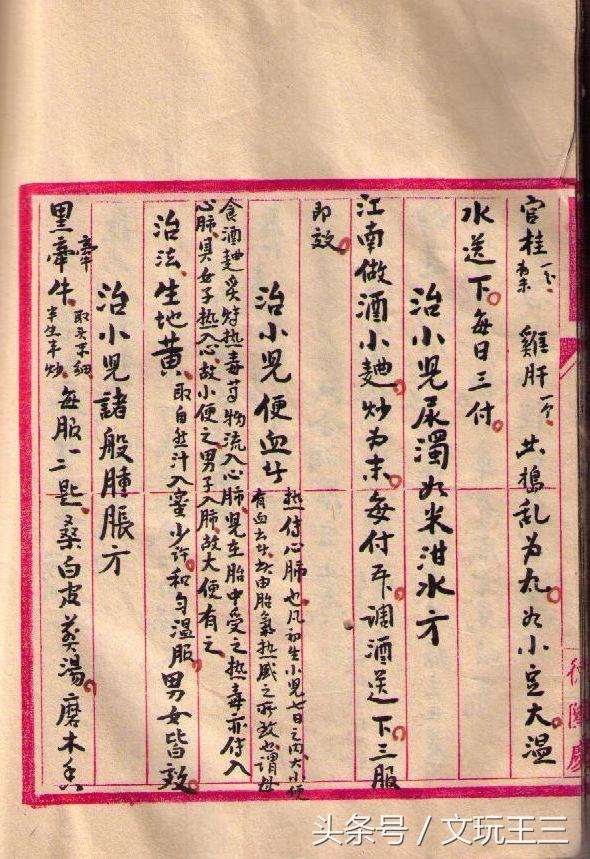 官桂一分为末 雞肝一具 共搗乱为丸如小豆大温
水送下每日三付
治小兒尿濁如米泔水方
江南做酒小麯炒为末每付 调酒送下三服
即效
治小兒便血方 热侍心肺也凡初生小兒七日之内大小便
有血出 由胎氣热威之所致也谓母
食酒麯炙炒热毒等物流入心肺兒在胎中受之热毒亦侍入
心肺 女子热入心故小便之男子入肺故大便有之
治法生地黄取自然汁入蜜少许和匀温服男女皆效
治小兒諸般腫脹方
黑牽牛取头末细半生半炒每服一二匙桑白皮煎湯磨木香
头条号 / 文玩王三